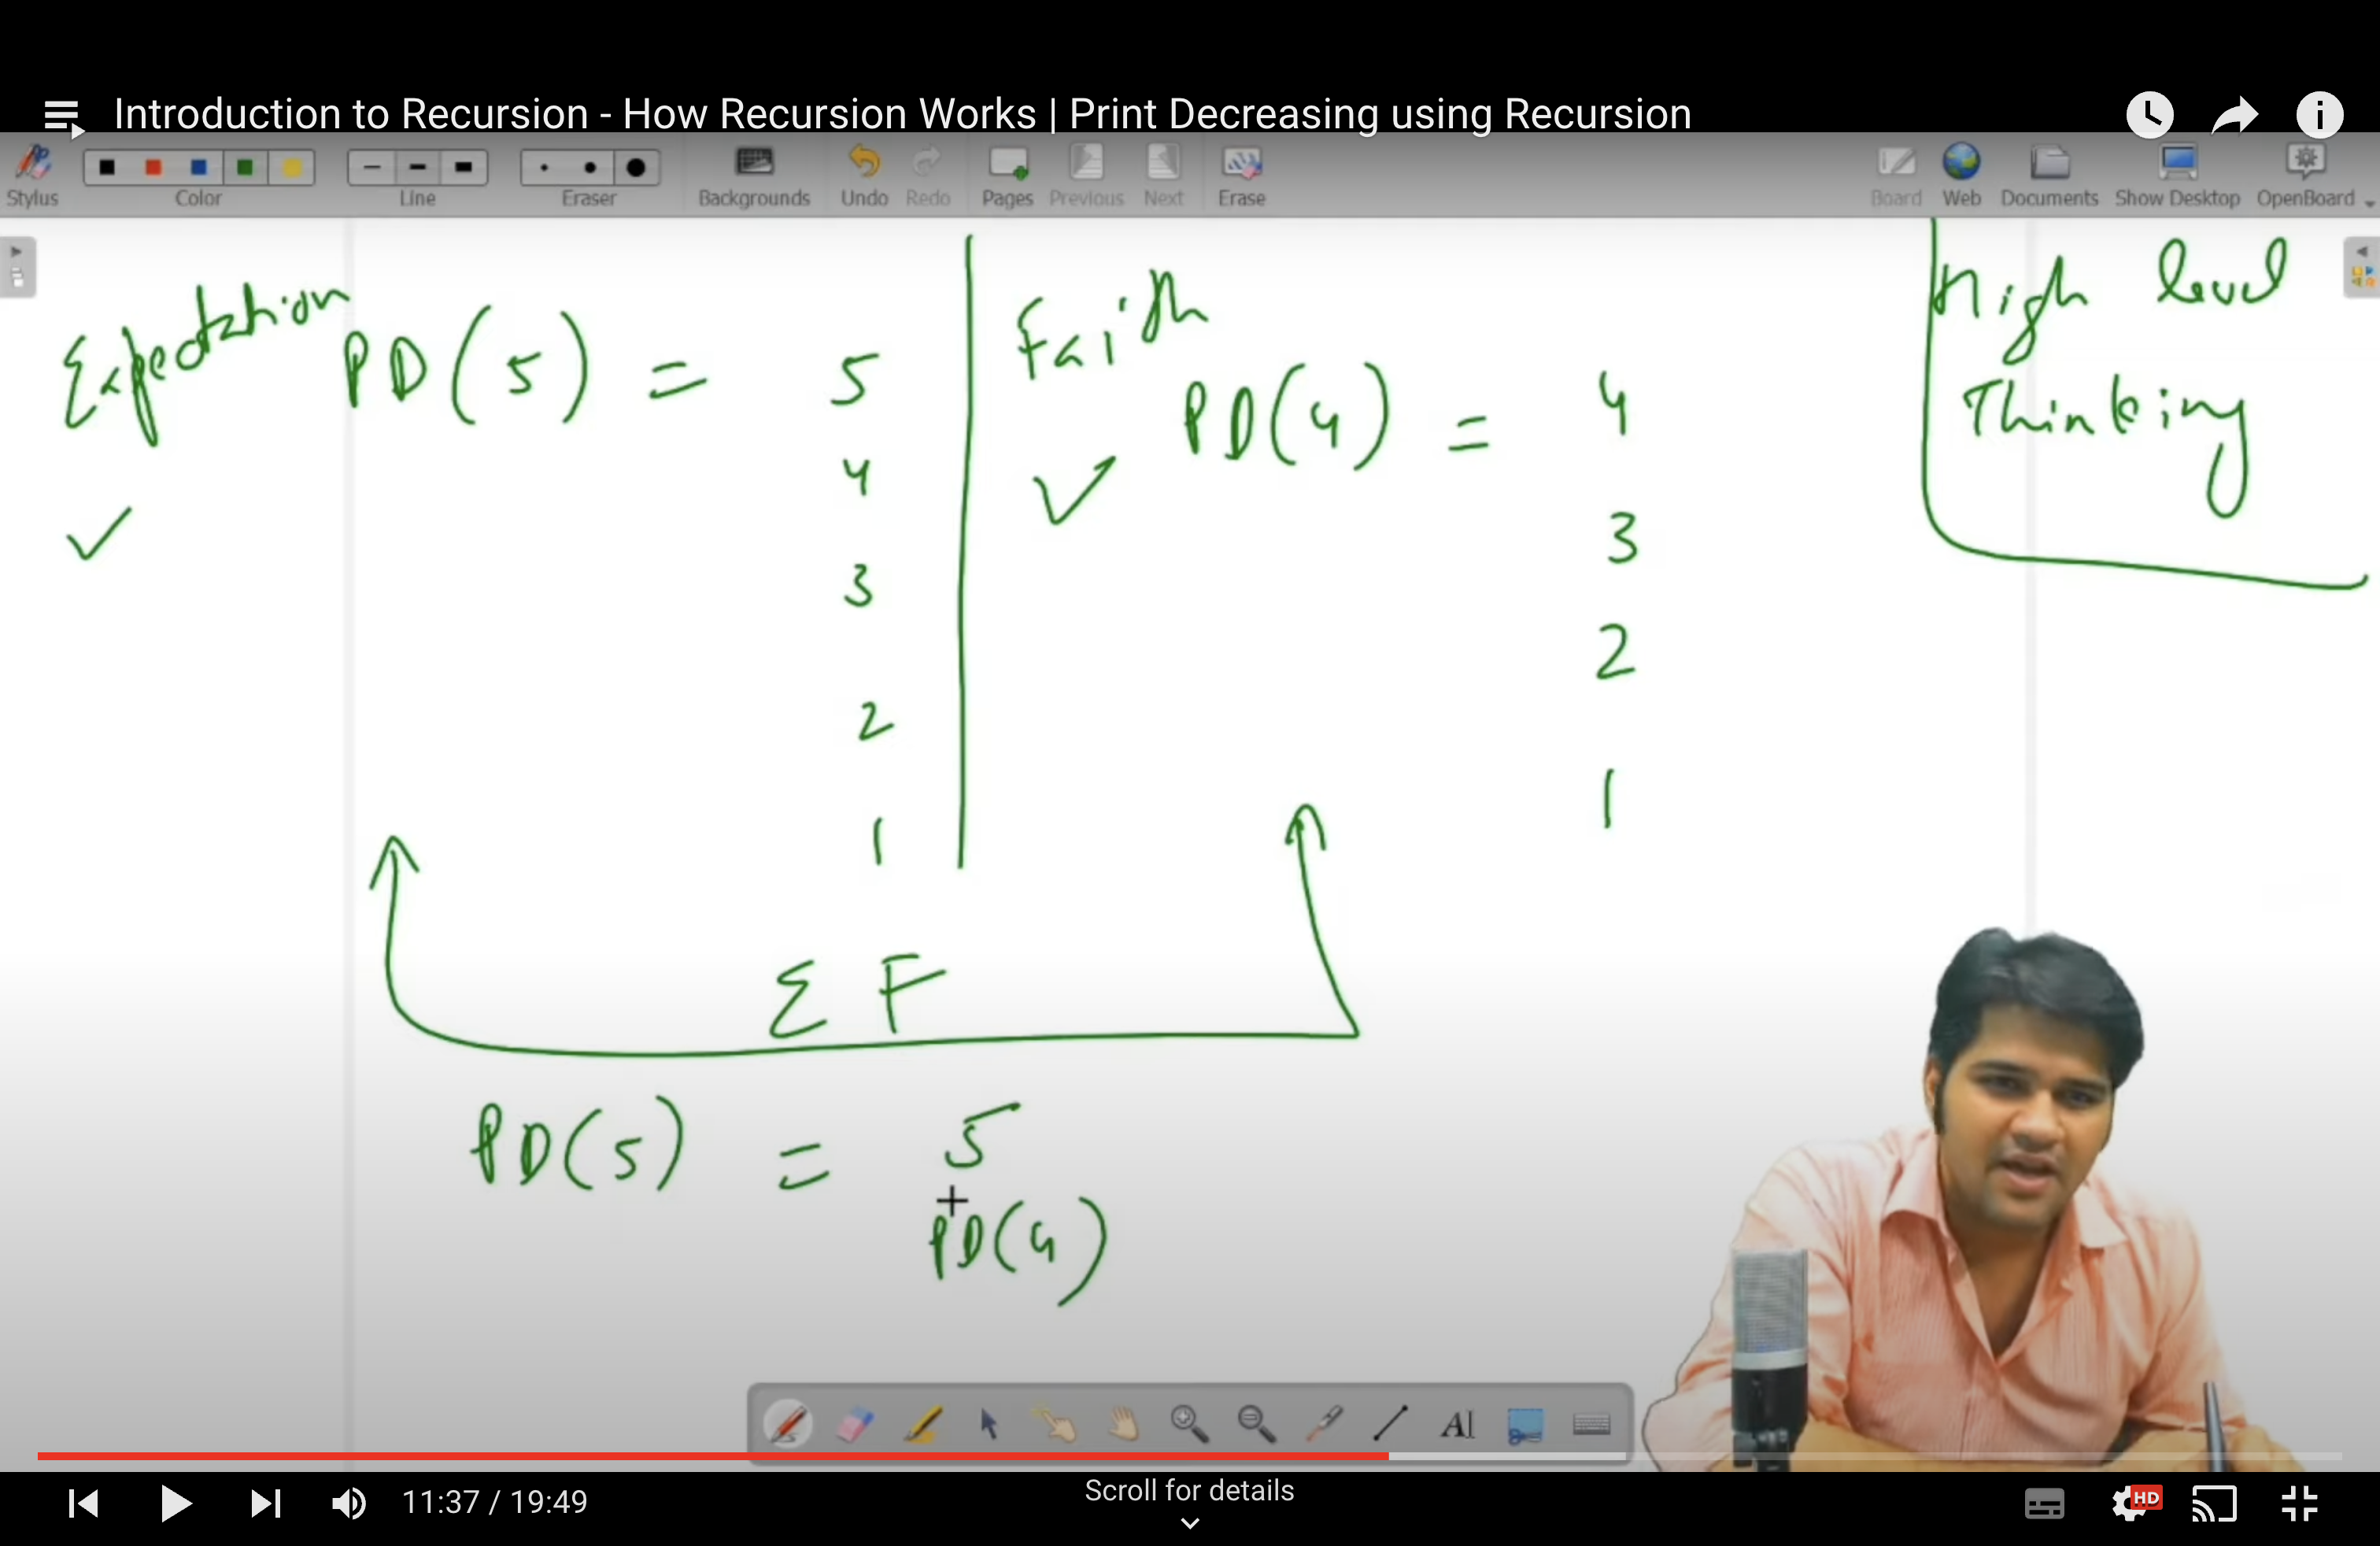 Introduction to Recursion - How Recursion Works | Print Decreasing using Recursion
Stylus
Color
Line
Eraser
Backgrounds
Undo
Redo
Pages
Previous
Next
Erase
Board
Web
Documents
Show Desktop
OpenBoard
Expectation PD(5) = 5
4
3
2
1
Faith
PD(4) = 4
3
2
1
High level
Thinking
E F
PD(5) = 5
PD(4)
AI
11:37 / 19:49
Scroll for details
HD